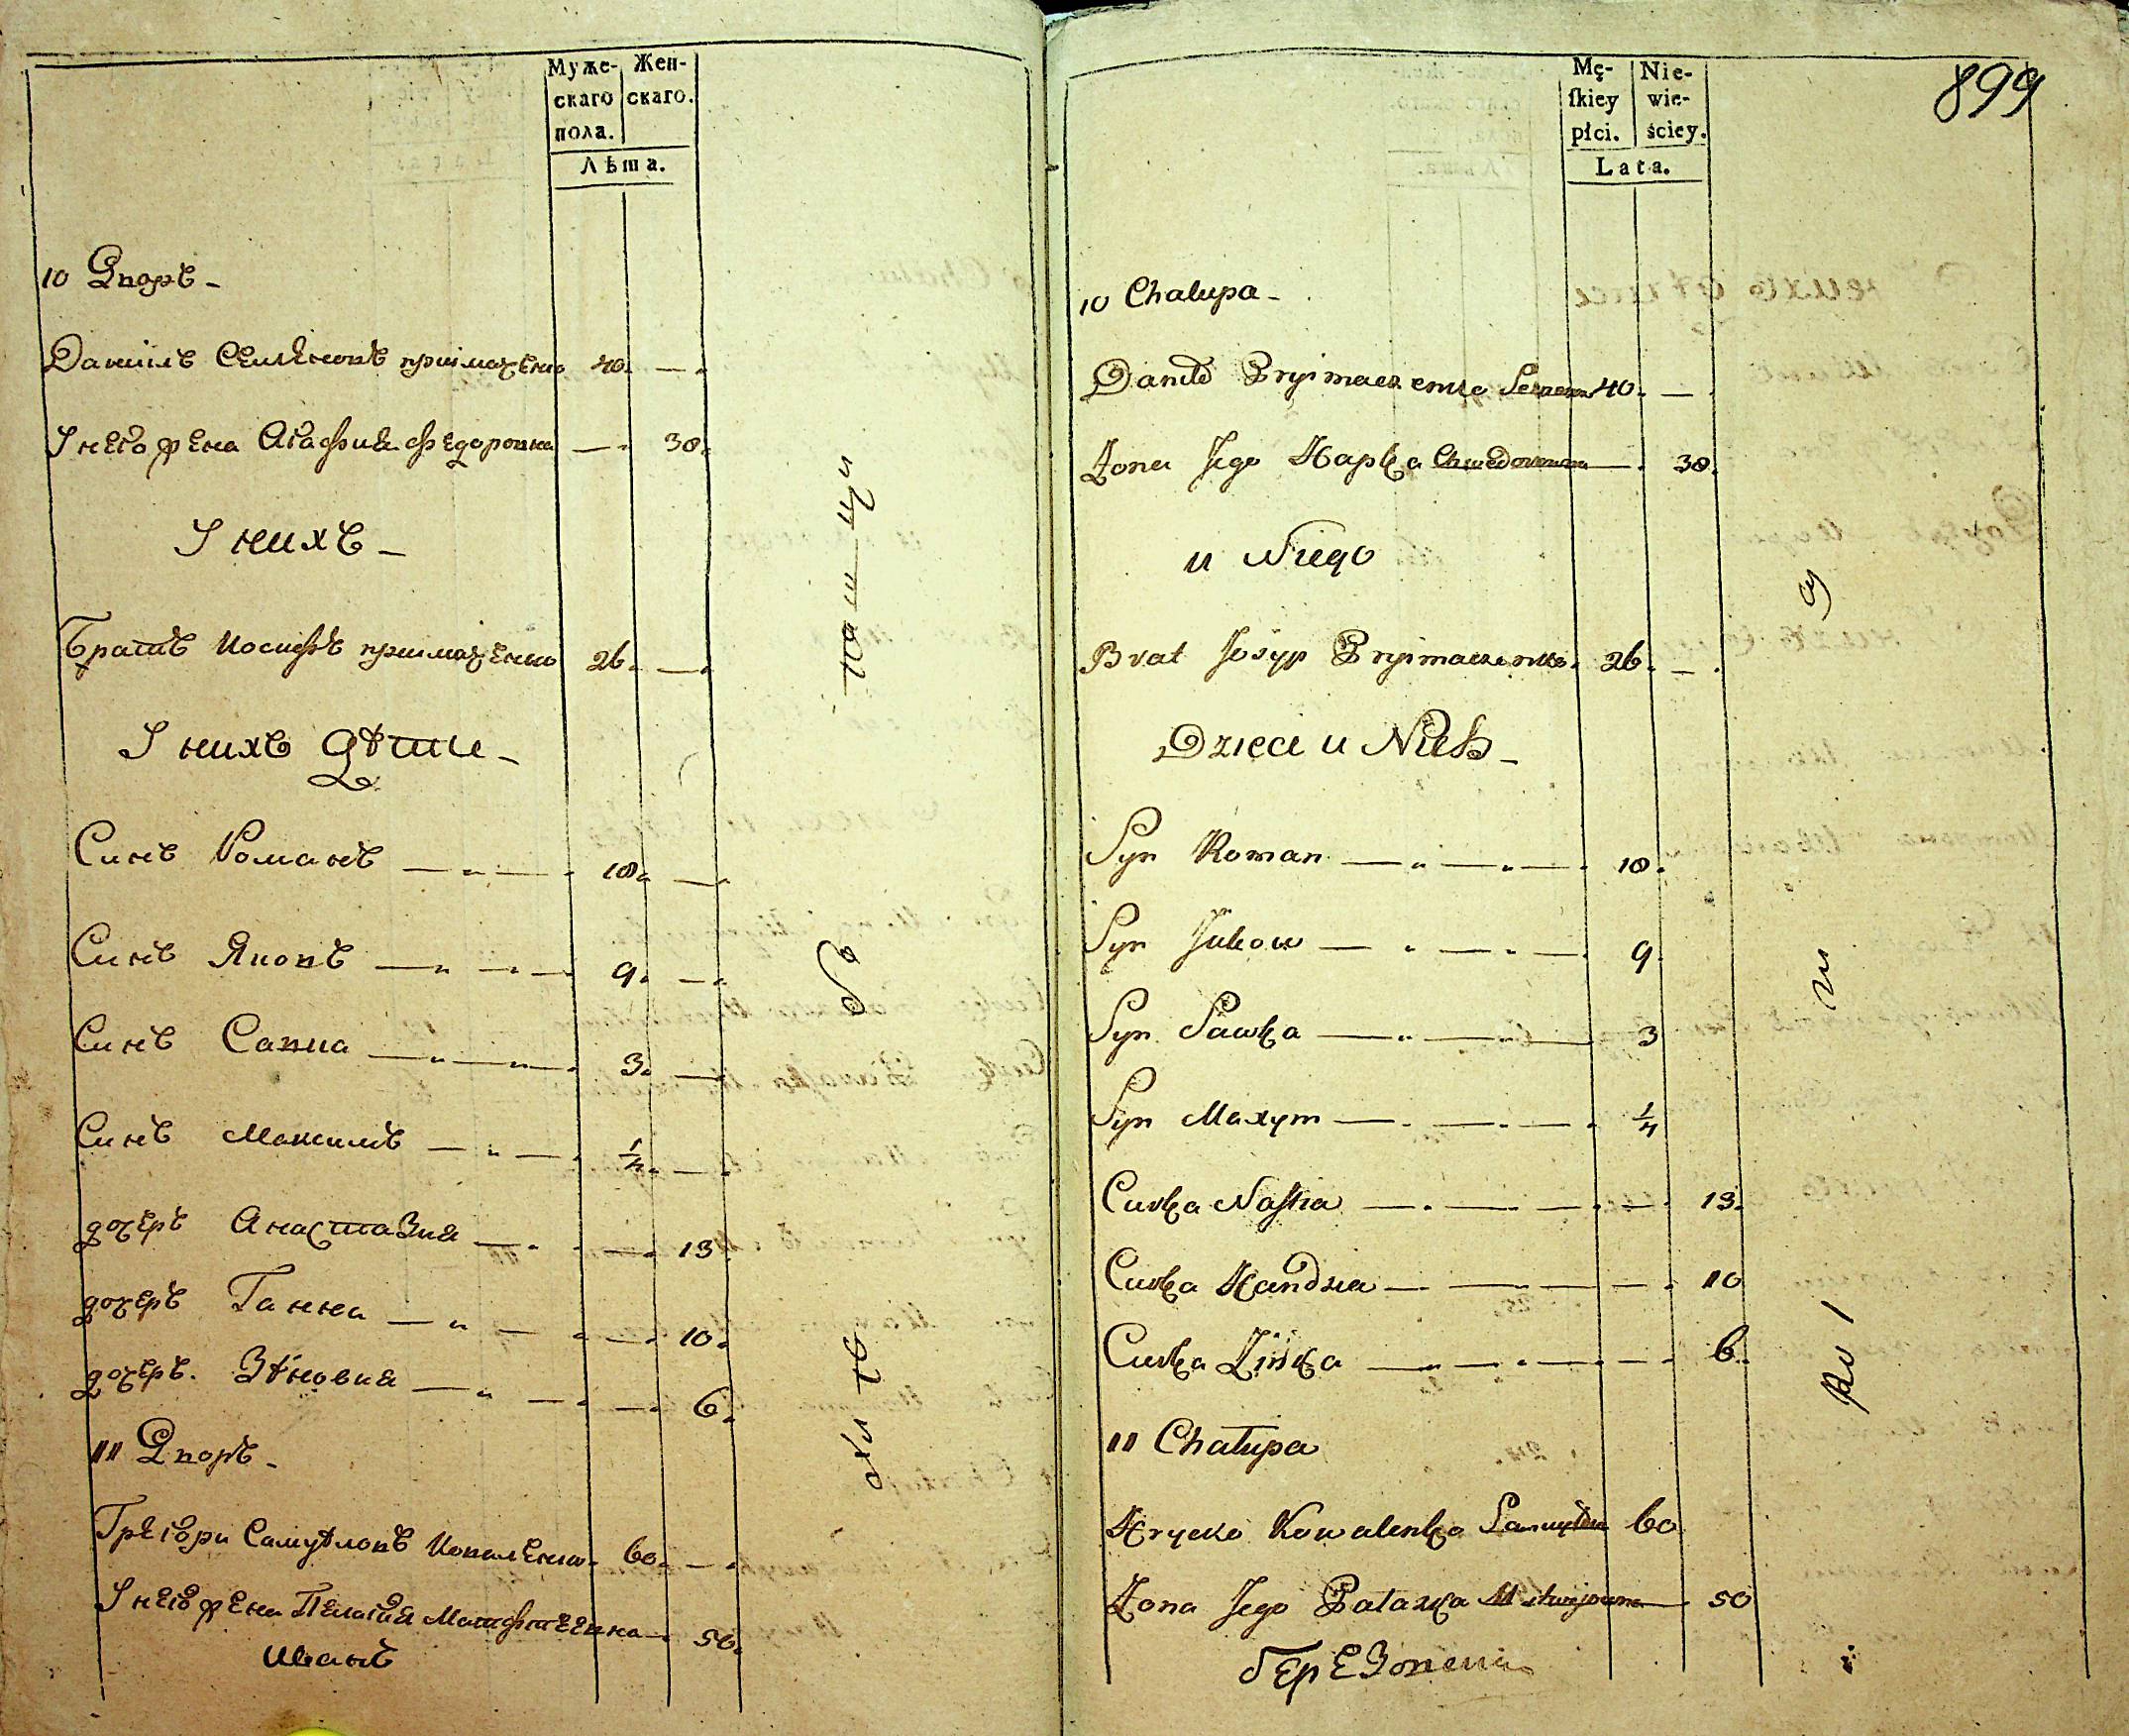 Муже- Жен-
скаго скаго.
пола.
Лѣта.
10 Дворъ -
Данiилъ Семѣновъ приймаченко 40. —
У него жена Агафия Федоровна — 38.
У нихъ -
Братъ Иосифъ приймаченко 26. —
У нихъ дѣти -
Синъ Романъ — 18. —
Синъ Яковъ — 9. —
Синъ Савка — 3. —
Синъ Максимъ — 1/4. —
дочеръ Анастазия — 13.
дочеръ Ганна — 10.
дочеръ. Зѣновия — 6.
11 Дворъ -
Грегори Самуѣловъ Коваленко. 60. —
У него жена Пелагия Матфѣевна — 50.
Иванъ
899
Mę- Nie-
skiey wie-
płci. ściey.
Lata.
10 Chalupa -
Daniło Pryimaczenko Semenow 40. —
Żona Jego Hapka Chwedorowna — 38.
u Niego
Brat Josyp Pryimaczenko. 26. —
Dzieci u Nich -
Syn Roman — 18.
Syn Jakow — 9
Syn Sawka — 3
Syn Maxym — 1/4
Curka Nastia — 13.
Curka Handzia — 10
Curka Zinka — 6.
11 Chałupa
Hrycko Kowalenko Samuyłow 60
Żona Jego Palażka Matwijowna — 50